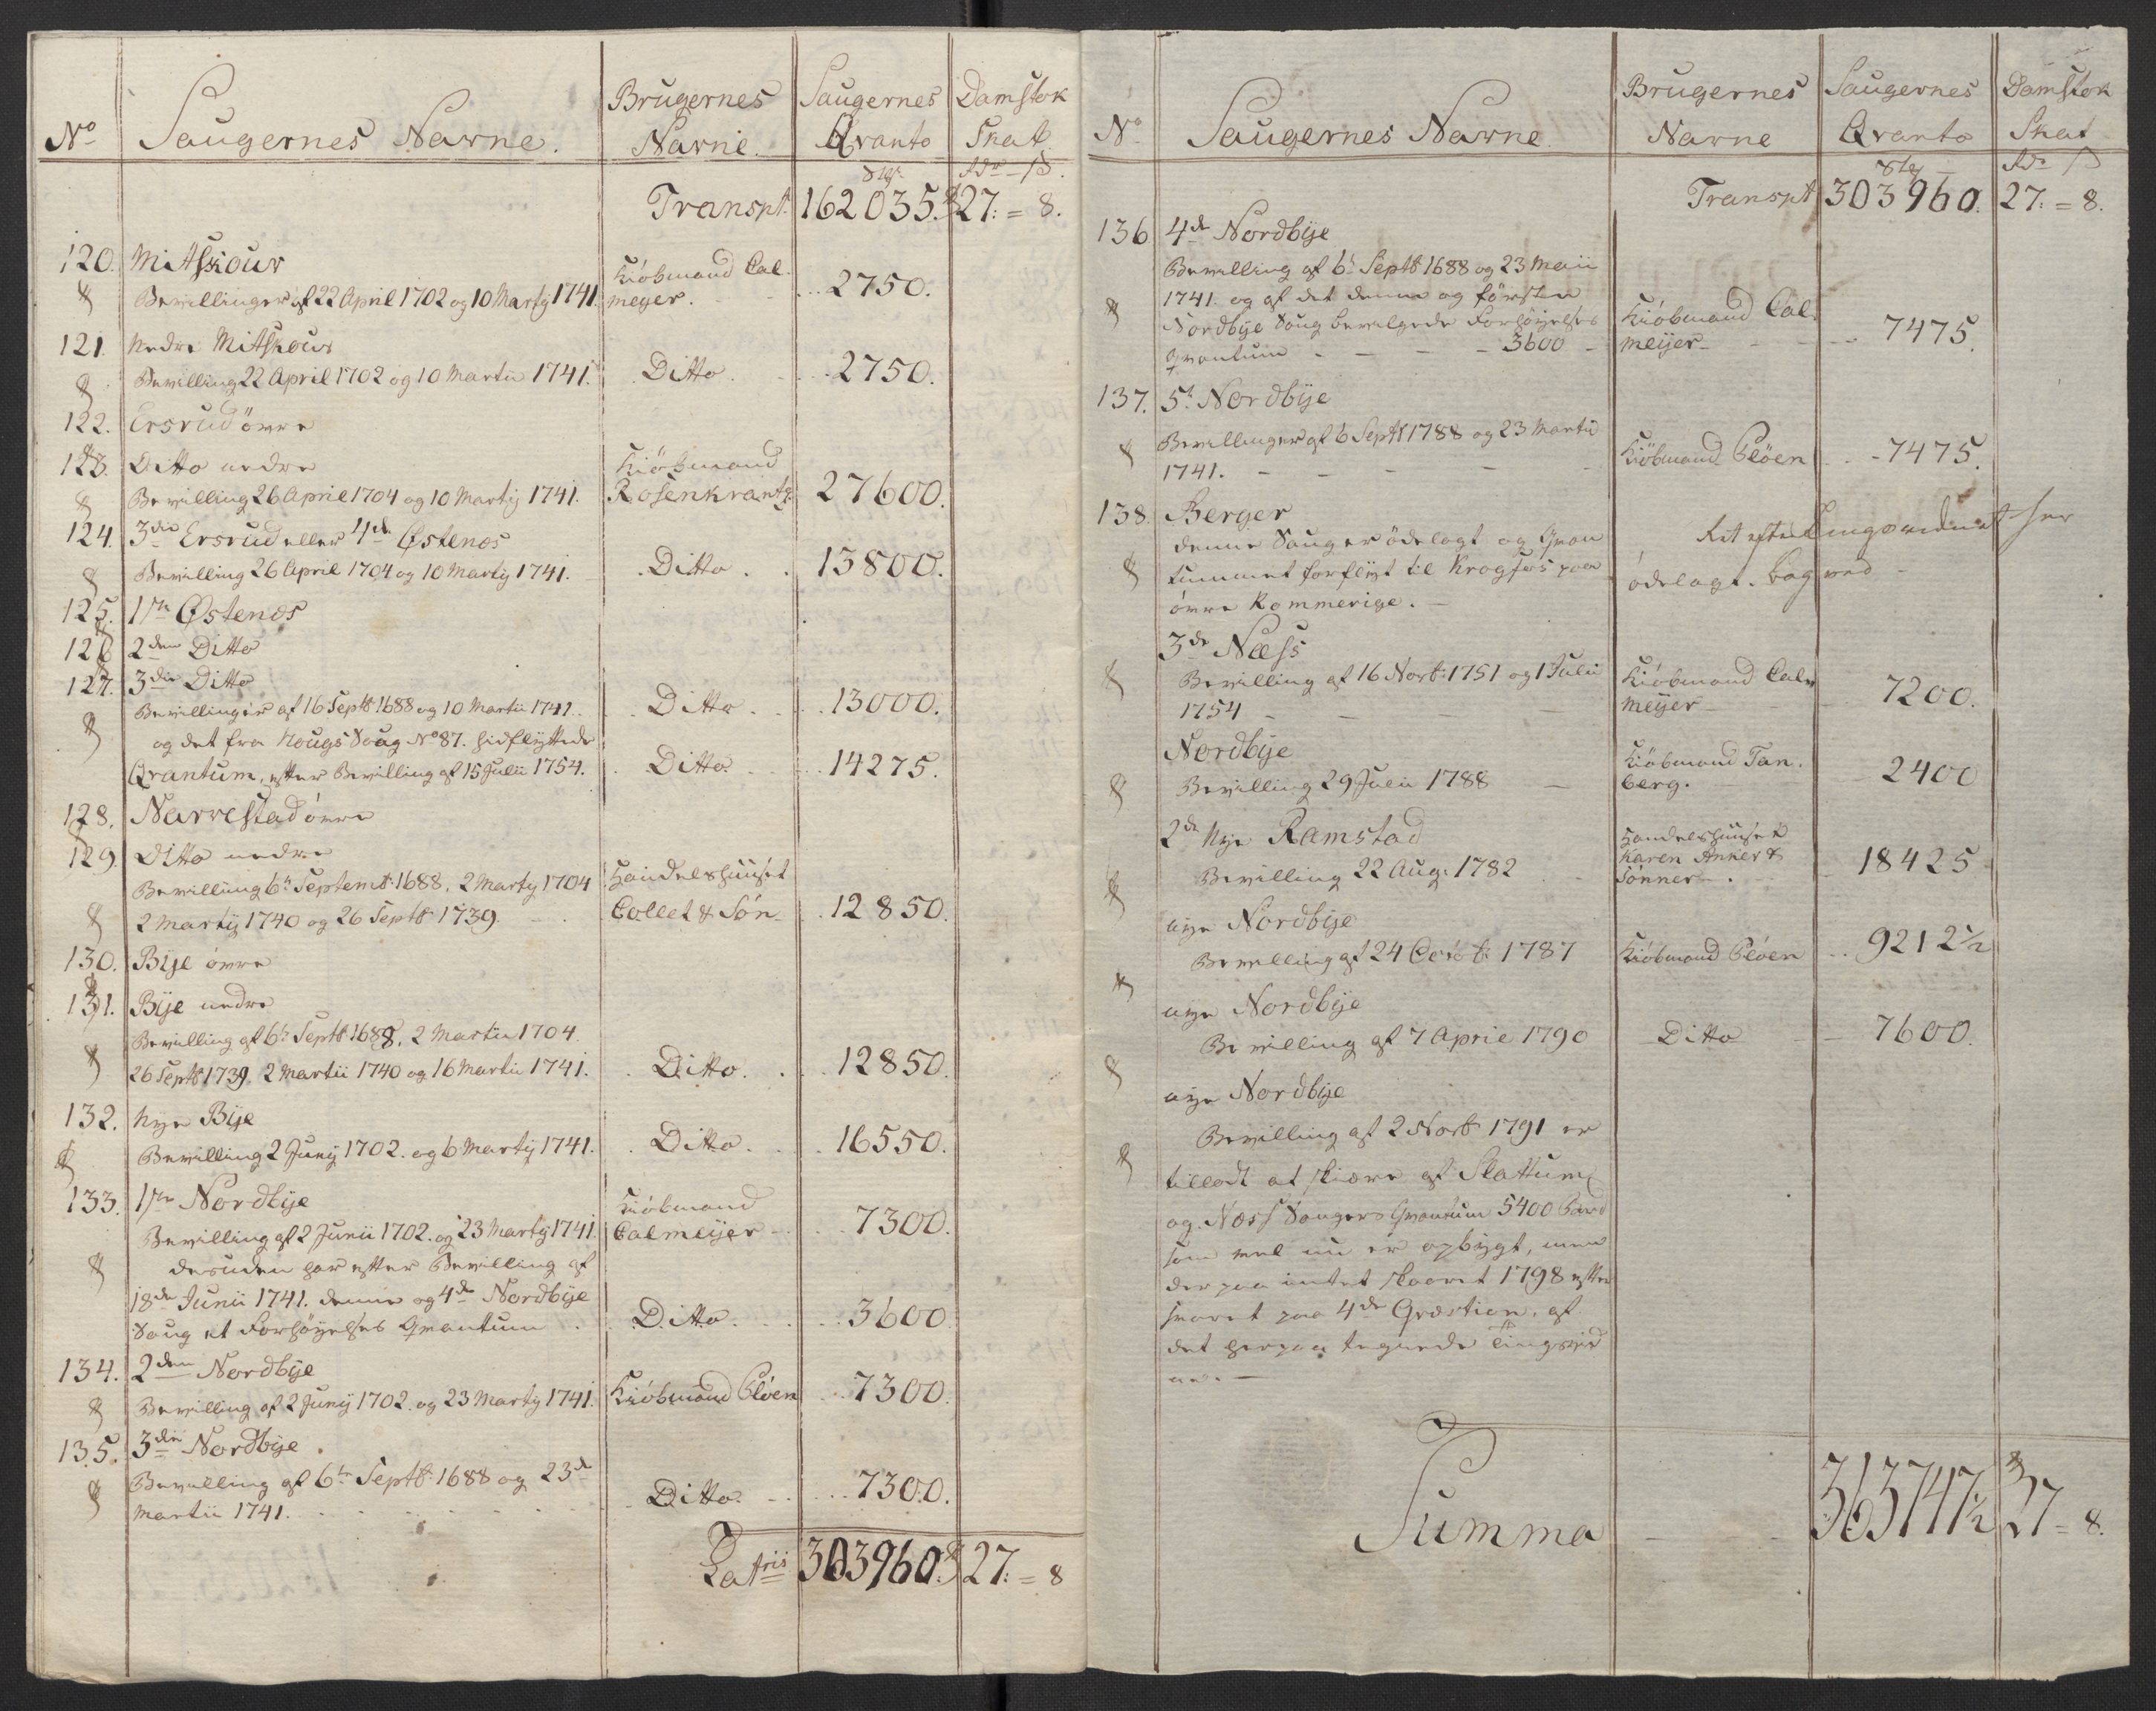 No Saugernes Navne. Brugernes Navne. Saugernes Qvanto Damstok Skat.
Transpt. 162035. 27. = 8.
120. Mitskour
Bevillinger af 22 April 1702 og 10 Martij 1741. Kiöbmand Calmeyer. 2750.
121. Nedre Mitskour
Bevilling 22 April 1702 og 10 Martii 1741. Ditto. 2750.
122. Ersrud övre
123. Ditto nedre Kiöbmand
Bevilling 26 April 1704 og 10 Martij 1741. Rosenkrantz. 27600.
124. 3die Ersrud eller 4de Østenos
Bevilling 26 April 1704 og 10 Martij 1741. Ditto. 13800.
125. 1ste Østenos
126 2den Ditto
127. 3die Ditto
Bevillinger af 16 Septb 1688 og 10 Martii 1741. Ditto. 13000.
og det fra Hougs Saug No 87. hidflyttede
Qvantum, efter Bevilling af 15 Julii 1754. Ditto. 14275.
128. Narrestad övre
129. Ditto nedre
Bevilling 6te Septemb: 1688. 2 Martij 1704 Handelshuuset
2 Martij 1740 og 26 Septb 1739. Collet & Sön 12850.
130. Bije övre
131. Bije nedre
Bevilling af 6te Septb 1688. 2 Martii 1704.
26 Septb 1739. 2 Martii 1740 og 16 Martii 1741. Ditto. 12850.
132. Nye Bije
Bevilling 2 Junij 1702. og 6 Martij 1741. Ditto. 16550.
133. 1ste Nordbije Kiöbmand
Bevilling af 2 Junii 1702. og 23 Martij 1741. Calmeijer 7300.
desuden har efter Bevilling af
18de Junii 1741. denne og 4de Nordbije
Saug et Forhöyelses Qvantum. Ditto. 3600
134. 2den Nordbije
Bevilling af 2 Junij 1702. og 23 Martij 1741. Kiöbmand Plöen 7300.
135. 3die Nordbije
Bevilling af 6te Septb: 1688 og 23de
Martii 1741. Ditto. 7300.
Latris 303960. 27. = 8
No Saugernes Navne Brugernes Navne Saugernes Qvanto Damstok Skat
Transpt 303960. 27. = 8.
136 4de Nordbije
Bevilling af 6te Septb 1688 og 23 Maii
1741. og af det denne og försten
Nordbije Saug bevilgede Forhöyelses Kiöbmand Cal-
Qvantum 3600 meijer 7475.
137. 5te Nordbije
Bevillinger af 6 Septb 1788 og 23 Martii
1741. Kiöbmand Plöen 7475.
138. Berger
denne Saug er ödelagt og Qvan
tummet forflyt til Krogfos paa
övre Rommerige.
ödelagt. bag ved
3de Næss
Bevilling af 16 Novb: 1751 og 1 Julii Kiöbmand Cal
1754 meijer 7200.
Nordbije
Bevilling 29 Julii 1788 Kiöbmand Tanberg. 2400
2de Nye Ramstad
Bevilling 22 Aug: 1782 Handelshuuset Karen Anker & Sönner. 18425
nye Nordbije
Bevilling af 24 Octob: 1787 Kiöbmand Plöen 9212½
nye Nordbije
Bevilling af 7 April 1790 Ditto 7600.
nye Nordbije
Bevilling af 2 Novb 1791 er
tilladt at skiære af Slattum
og Næss Sauger Qvantum 5400 Bord
som vel nu er opbygt, men
derpaa intet skaaret 1798 efter
svaret paa 4de Qvæstion, af
det herpaa tegnede Tingsvid
ne.
Summa 363747½ 27 = 8.